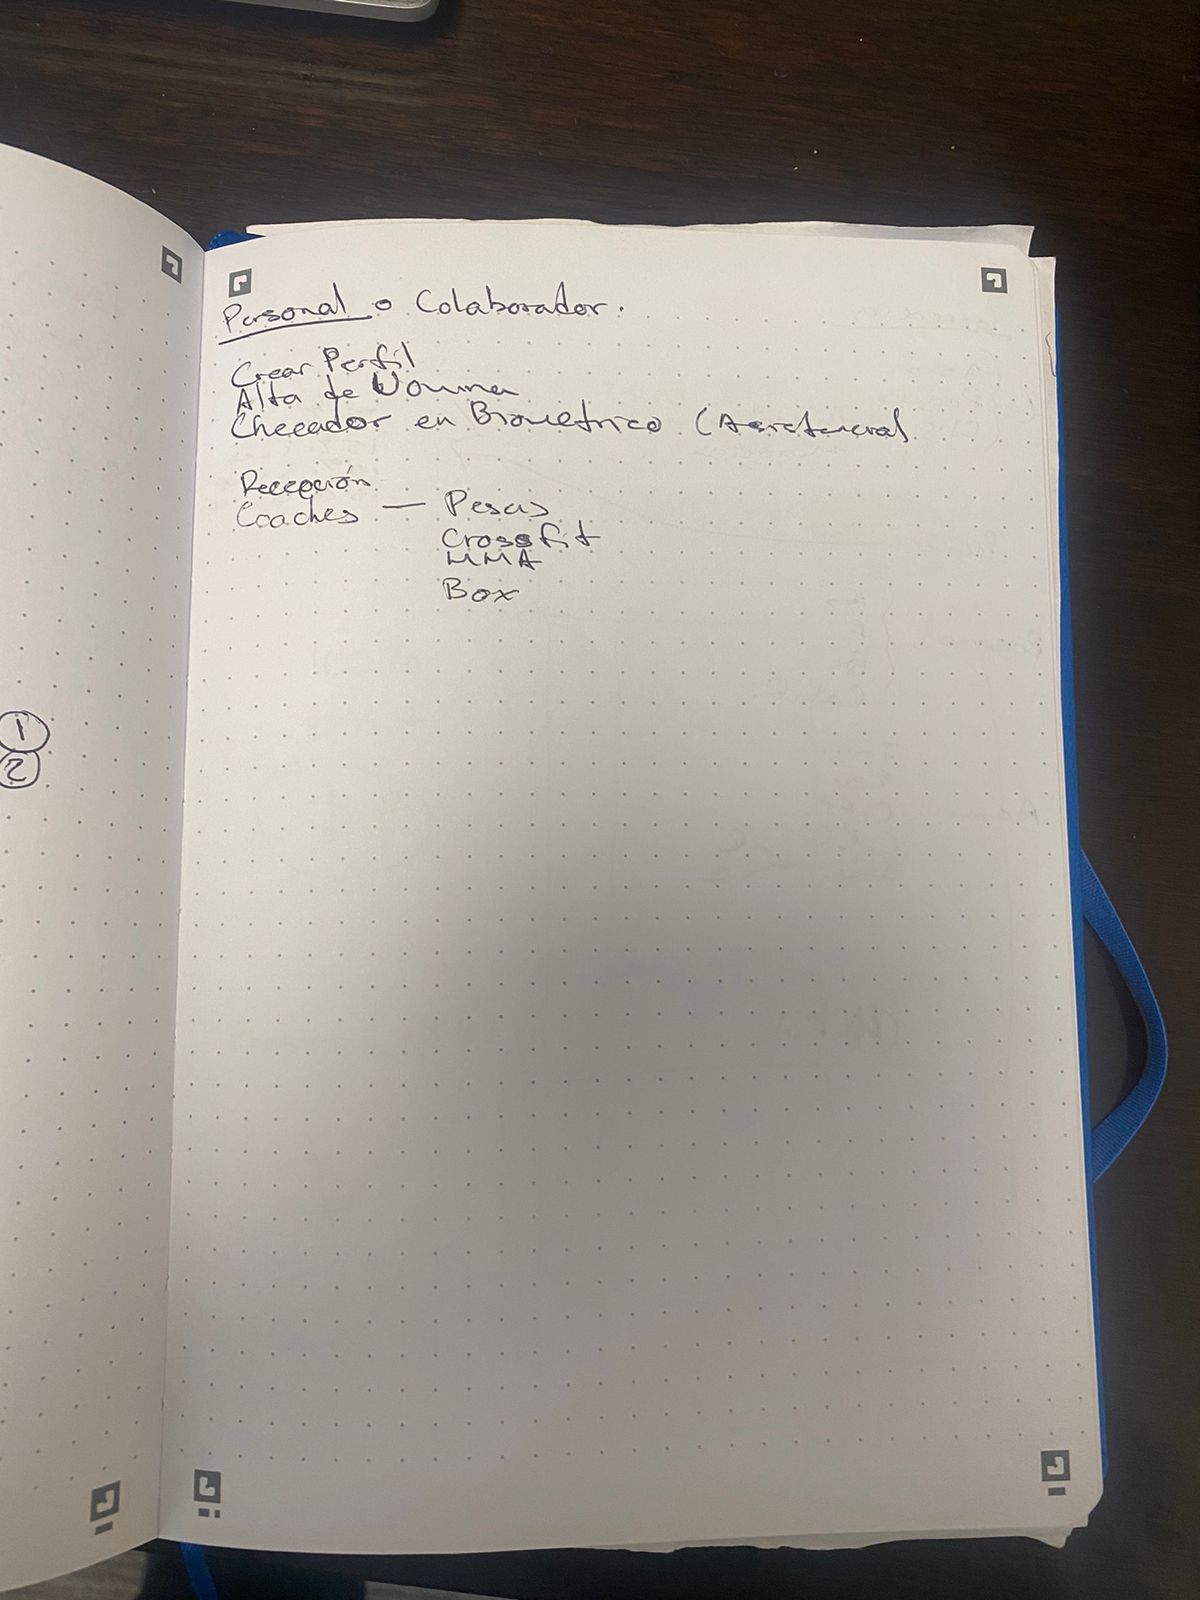 1
2
Personal o Colaborador.
Crear Perfil
Alta de Nomina
Checador en Biometrico (Asistencial
Recepción
Coaches — Pesas
Crossfit
MMA
Box